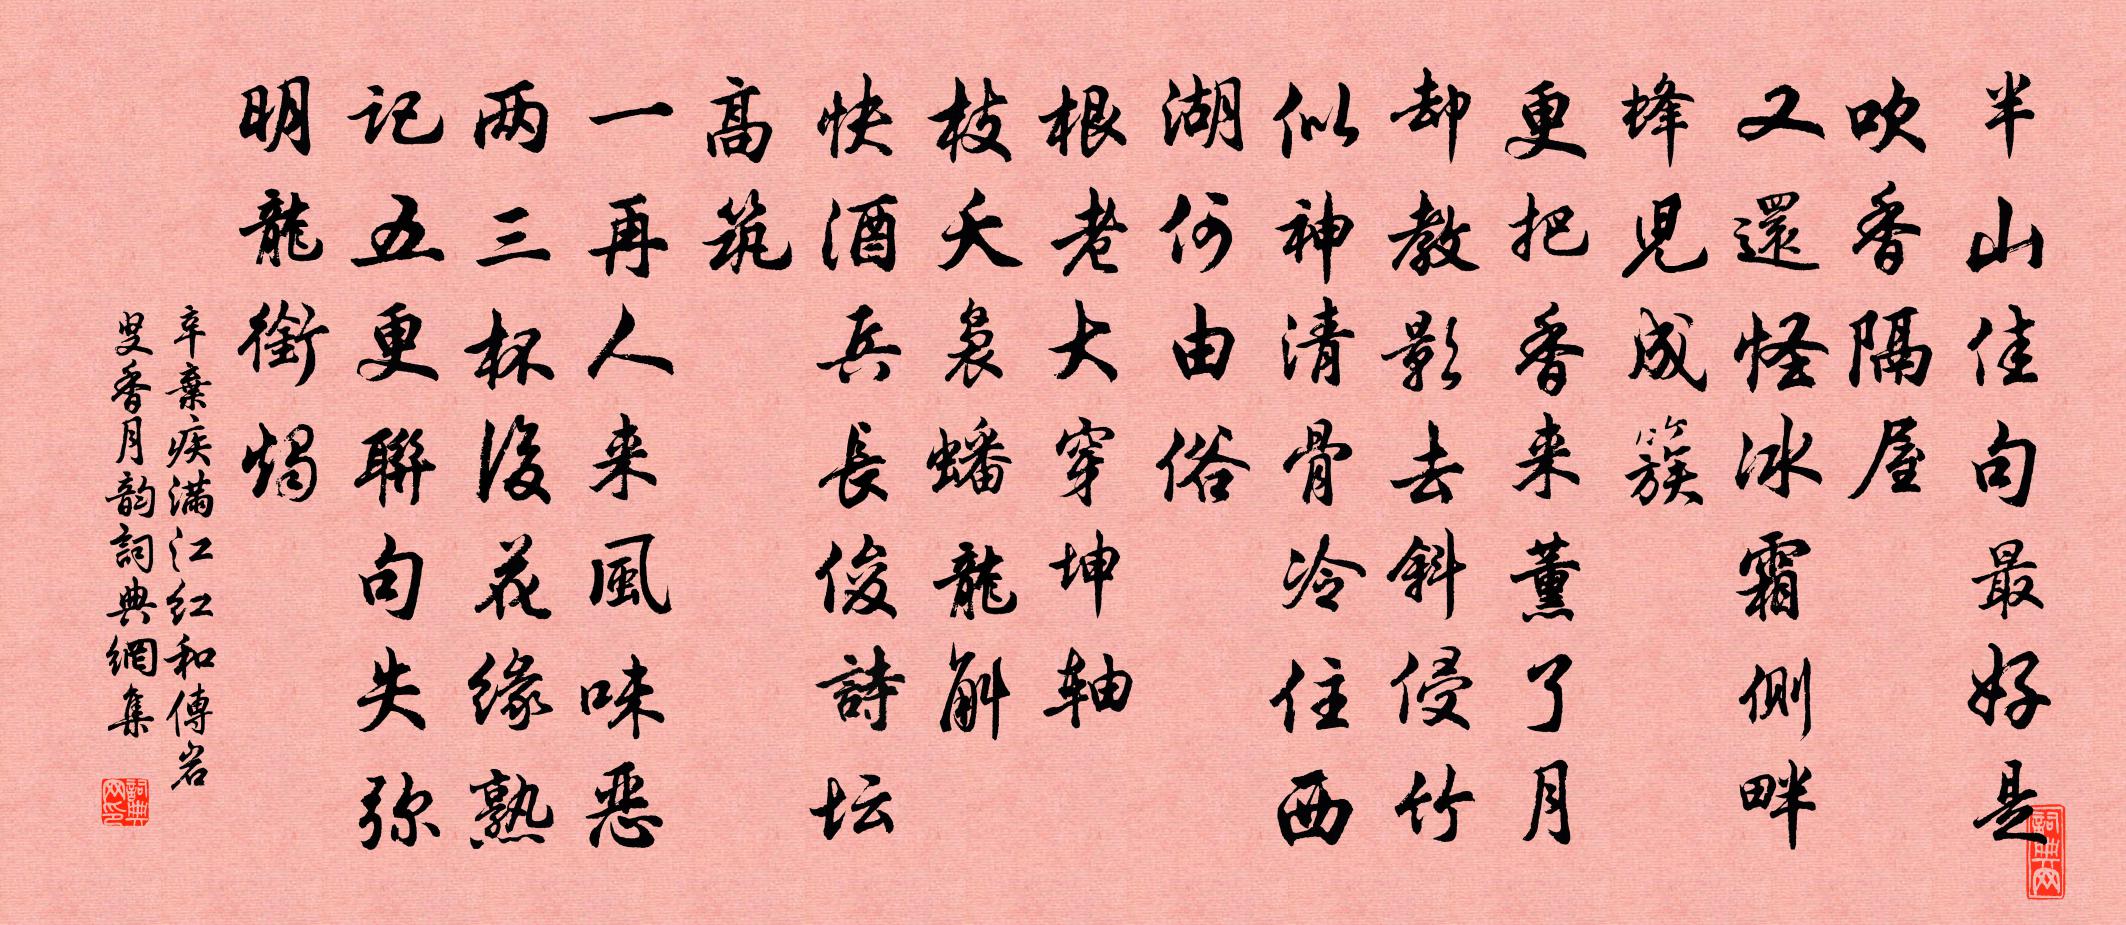 半山佳句最好是
吹香隔屋
又還怪冰霜側畔
蜂児成簇
更把香来薰了月
却教影去斜侵竹
似神清骨冷住西
湖何由俗
根老大穿坤軸
枝夭裊蟠龍斛
快酒兵長俊詩坛
高筑
一再人来風味恶
两三杯後花缘熟
记五更聯句失弥
明龍銜燭
辛棄疾满江红和傅岩
叟香月韵詞典網集
詞典网
詞典网印